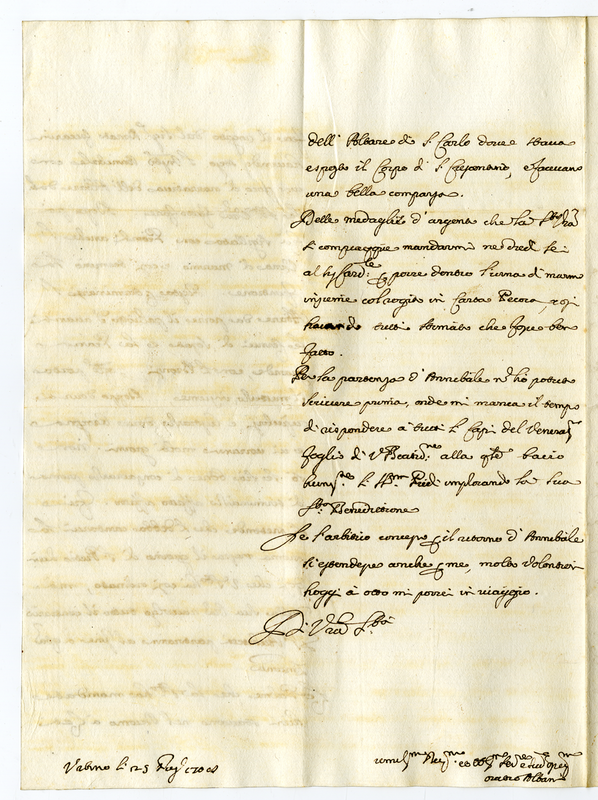 dell' Altare di S. Carlo dove stava
esposto il Corpo di S. Crescentino, e facevano
una bella comparsa.
Delle medaglie d'argento che la S.tà V.ra
si compiacque mandarmi ne diedi sei
al Sig.r Card.le p porre dentro l'urna di marmo
insieme col rogito in Carta Pecora,
havendo tutti stimato che fosse ben
fatto.
Per la partenza d'Annibale nō hò potuto
scrivere prima, onde mi manca il tempo
di rispondere à tutti li Capi del Venerat.
foglio di V. Beatid.ne alla q.le bacio
humil.te li S.mi Piedi implorando la sua
S.ta Benedittione
Se l'arbitrio concesso p il ritorno d'Annibale
s'estendesse anche p me, molto volontieri
hoggi à otto mi porrei in viaggio.
Di V.ra S.tà
Urbino li 25
Orazio Albani